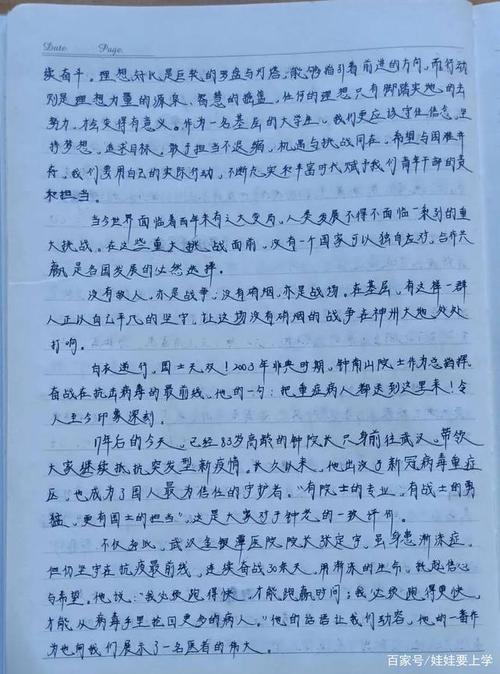 Date. Page.
续奋斗。理想好比是巨轮的罗盘与灯塔,能够指引着前进的方向,而行动
则是理想力量的源泉、智慧的摇篮,任何的理想只有脚踏实地的去
努力,才会变得有意义。作为一名基层的大学生,我们更应该守住信念,坚
持梦想,追求目标。敢于担当不退缩,机遇与挑战同在,希望与困难并
存,我们要用自己的实际行动,不断充实和丰富时代赋予我们青年干部的责
和担当。
当今世界面临着百年未有之大变局,人类发展不得不面临一系列的重
大挑战。在这些重大挑战面前,没有一个国家可以独自应对,合作共
赢是各国发展的必然选择。
没有敌人,亦是战争,没有硝烟,亦是战场。在基层,有这样一群
人正以自己平凡的坚守,让这场没有硝烟的战争在神州大地处处
打响。
白衣逆行,国士无双!2003年非典时期,钟南山院士作为总指挥
奋战在抗击病毒的最前线,他的一句:把重症病人都送到这里来!令
人至今印象深刻。
17年后的今天,已经83岁高龄的钟院长只身前往武汉,带领
大家继续抵抗突发型新疫情。长久以来,他出没于新冠病毒重症
区,也成为了国人最为信任的守护者。“有院士的专业,有战士的勇
猛,更有国士的担当”,这是大家对于钟老的一致评价。
不仅如此,武汉金银潭医院院长张定宇,虽身患渐冻症,
但仍坚守在抗疫最前线,连续奋战30来天,用渐冻的生命,托起信心
与希望。他说:“我必须跑得快,才能跑赢时间;我必须跑得更快,
才能从病毒手里抢回更多的病人。”他的话语让我们动容,他的一番作
为也向我们展示了一名医者的伟大。
百家号/娃娃要上学